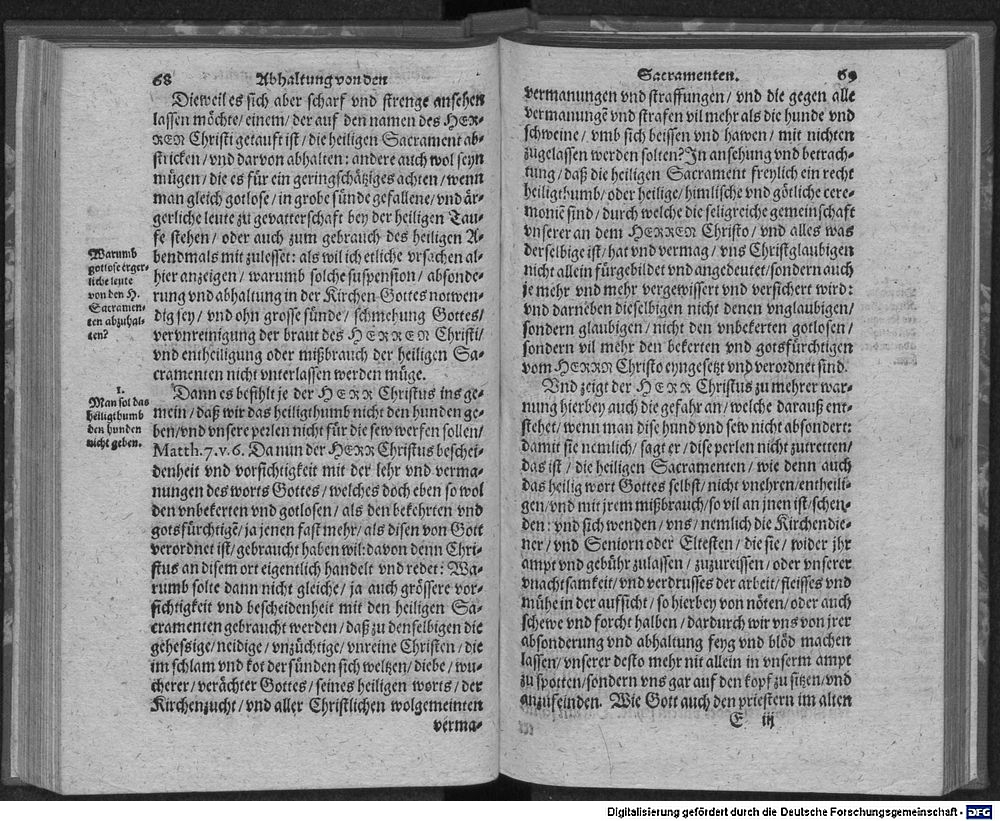 68 Abhaltung von den
Dieweil es sich aber scharf vnd strenge ansehen
lassen möchte/ einem/ der auf den namen des HER-
REN Christi getauft ist/ die heiligen Sacrament ab-
stricken/ vnd darvon abhalten: andere auch wol seyn
mügen/ die es für ein geringschätziges achten/ wenn
man gleich gotlose/ in grobe sünde gefallene/ vnd är-
gerliche leute zu gevatterschaft bey der heiligen Tau-
fe stehen/ oder auch zum gebrauch des heiligen A-
bendmals mit zulesset: als wil ich etliche vrsachen al-
hier anzeigen/ warumb solche suspension/ absonde-
rung vnd abhaltung in der Kirchen Gottes notwen-
dig sey/ vnd ohn grosse sünde/ schmehung Gottes/
vervnreinigung der braut des HERREN Christi/
vnd entheiligung oder mißbrauch der heiligen Sa-
cramenten nicht vnterlassen werden müge.
Warumb
gotlose erger-
liche leute
von den H.
Sacramen-
ten abzuhal-
ten?
Dann es befihlt je der HERR Christus ins ge-
mein/ daß wir das heiligthumb nicht den hunden ge-
ben/ vnd vnsere perlen nicht für die sew werfen sollen/
Matth. 7. v. 6. Da nun der HERR Christus beschei-
denheit vnd vorsichtigkeit mit der lehr vnd verma-
nungen des worts Gottes/ welches doch eben so wol
den vnbekerten vnd gotlosen/ als den bekehrten vnd
gotsfürchtigē/ ja jenen fast mehr/ als disen von Gott
verordnet ist/ gebraucht haben wil: davon denn Chri-
stus an disem ort eigentlich handelt vnd redet: Wa-
rumb solte dann nicht gleiche/ ja auch grössere vor-
sichtigkeit vnd bescheidenheit mit den heiligen Sa-
cramenten gebraucht werden/ daß zu denselbigen die
gehessige/ neidige/ vnzüchtige/ vnreine Christen/ die
im schlam vnd kot der sünden sich weltzen/ diebe/ wu-
cherer/ verächter Gottes/ seines heiligen worts/ der
Kirchenzucht/ vnd aller Christlichen wolgemeinten
verma-
1.
Man sol das
heiligthumb
den hunden
nicht geben.
Sacramenten. 69
vermanungen vnd straffungen/ vnd die gegen alle
vermanungē vnd strafen vil mehr als die hunde vnd
schweine/ vmb sich beissen vnd hawen/ mit nichten
zugelassen werden solten? In ansehung vnd betrach-
tung/ daß die heiligen Sacrament freylich ein recht
heiligthumb/ oder heilige/ himlische vnd götliche cere-
monië sind/ durch welche die seligreiche gemeinschaft
vnserer an dem HERREN Christo/ vnd alles was
derselbige ist/ hat vnd vermag/ vns Christglaubigen
nicht allein fürgebildet vnd angedeutet/ sondern auch
je mehr vnd mehr vergewissert vnd versichert wird:
vnd darneben dieselbigen nicht denen vnglaubigen/
sondern glaubigen/ nicht den vnbekerten gotlosen/
sondern vil mehr den bekerten vnd gotsfürchtigen
vom HERRN Christo eyngesetzt vnd verordnet sind.
Vnd zeigt der HERR Christus zu mehrer war-
nung hierbey auch die gefahr an/ welche darauß ent-
stehet/ wenn man dise hund vnd sew nicht absondert:
damit sie nemlich/ sagt er/ dise perlen nicht zutretten/
das ist/ die heiligen Sacramenten/ wie denn auch
das heilig wort Gottes selbst/ nicht vnehren/ entheili-
gen/ vnd mit jrem mißbrauch/ so vil an jnen ist/ schen-
den: vnd sich wenden/ vns/ nemlich die Kirchendie-
ner/ vnd Seniorn oder Eltesten/ die sie/ wider jhr
ampt vnd gebühr zulassen/ zuzureissen/ oder vnserer
vnachtsamkeit/ vnd verdrusses der arbeit/ fleisses vnd
mühe in der aufsicht/ so hierbey von nöten/ oder auch
schewe vnd forcht halben/ dardurch wir vns von jrer
absonderung vnd abhaltung feyg vnd blöd machen
lassen/ vnserer desto mehr nit allein in vnserm ampt
zu spotten/ sondern vns gar auf den kopf zu sitzen/ vnd
anzufeinden. Wie Gott auch den priestern im alten
E iij
Digitalisierung gefördert durch die Deutsche Forschungsgemeinschaft - DFG